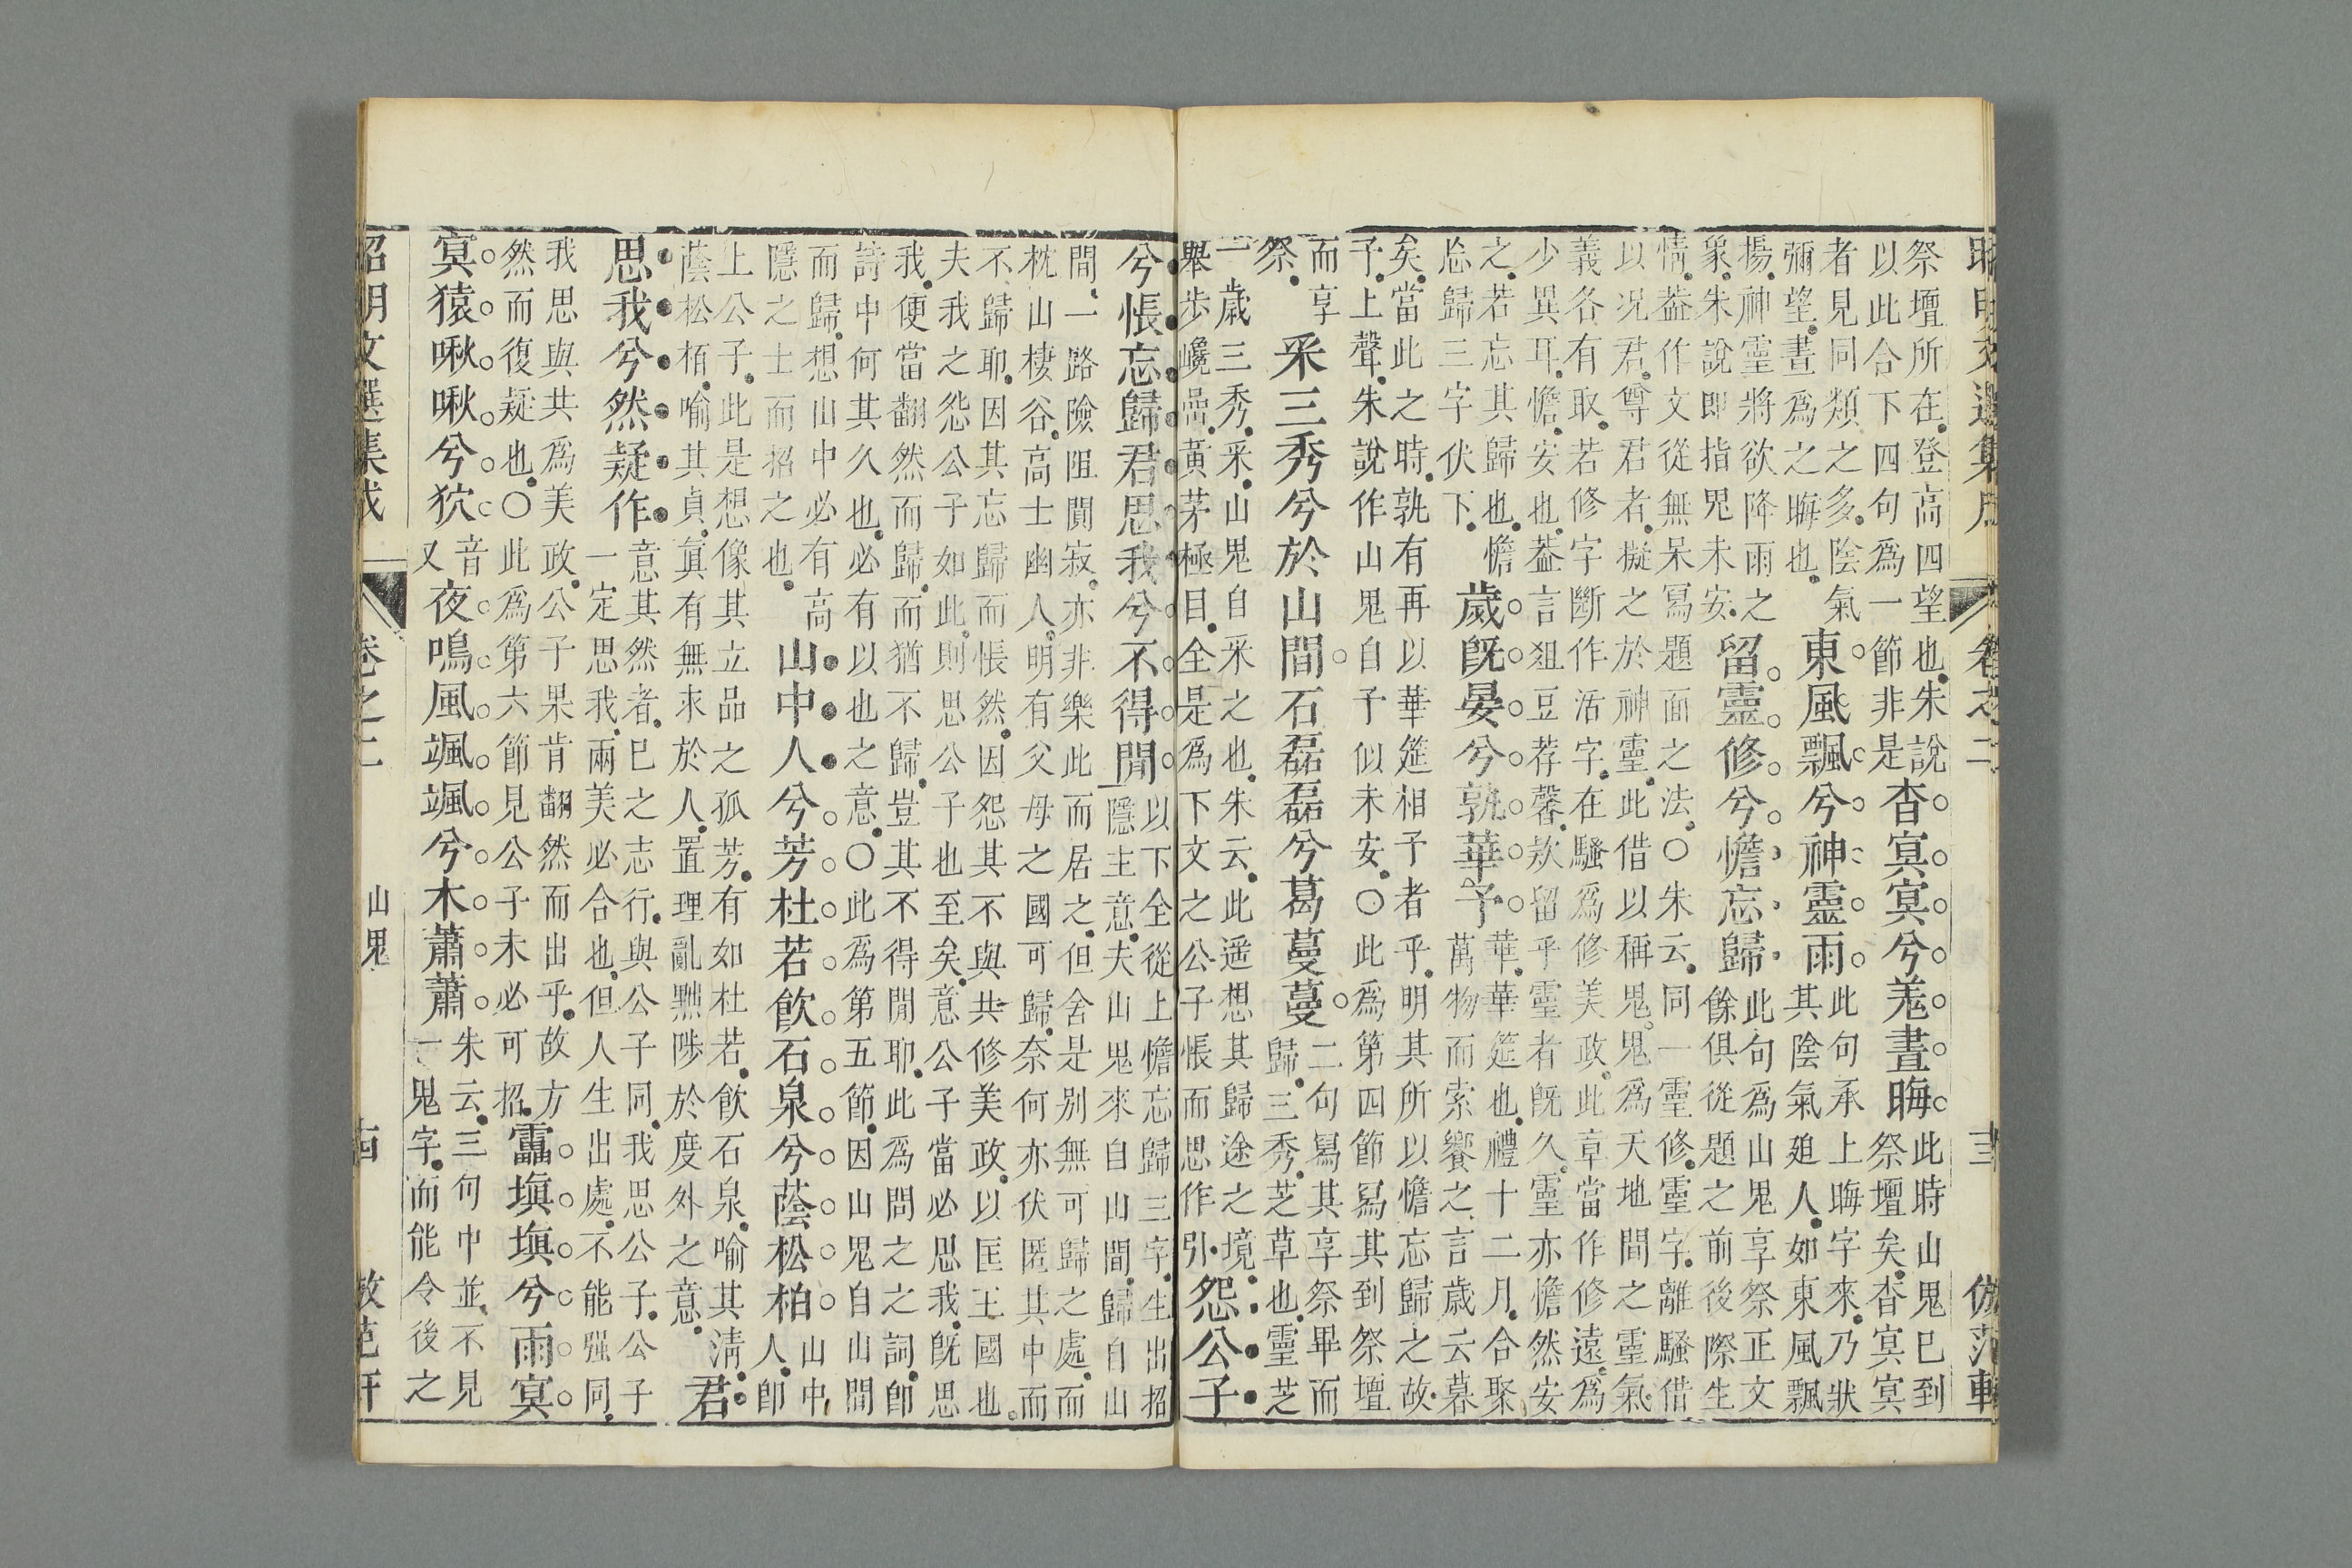 昭明文選集成 卷之二 倣范軒
祭壇所在登高四望也朱說
以此合下四句爲一節非是
杳冥冥兮羌晝晦
此時山鬼已到
祭壇矣杳冥冥
者見同類之多陰氣
彌望晝爲之晦也
東風飄兮神靈雨
此句承上晦字來乃狀
其陰氣廹人如東風飄
揚神靈將欲降雨之
象朱說即指鬼未安
留靈修兮憺忘歸
此句爲山鬼享祭正文
餘俱從題之前後際生
情葢作文從無呆寫題面之法○朱云同一靈修靈字離騷借
以况君尊君者擬之於神靈此借以稱鬼鬼爲天地間之靈氣
義各有取若修字斷作活字在騷爲修美政此章當作修遠爲
少異耳憺安也葢言俎豆荐馨欵留乎靈者旣久靈亦憺然安
之若忘其歸也憺
忘歸三字伏下
歲旣晏兮孰華予
華華筵也禮十二月合聚
萬物而索饗之言歲云暮
矣當此之時孰有再以華筵相予者乎明其所以憺忘歸之故
予上聲朱說作山鬼自予似未安○此爲第四節寫其到祭壇
而享
祭
采三秀兮於山間石磊磊兮葛蔓蔓
二句寫其享祭畢而
歸三秀芝草也靈芝
一歲三秀采山鬼自采之也朱云此遥想其歸途之境
舉步巉嵒黃茅極目全是爲下文之公子悵而思作引
怨公子
兮悵忘歸君思我兮不得閒
以下全從上憺忘歸三字生出招
隱主意夫山鬼來自山間歸自山
間一路險阻闃寂亦非樂此而居之但舍是别無可歸之處而
枕山棲谷高士幽人明有父母之國可歸奈何亦伏匿其中而
不歸耶因其忘歸而悵然因怨其不與共修美政以匡王國也
夫我之怨公子如此則思公子也至矣意公子當必思我旣思
我便當翻然而歸而猶不歸豈其不得閒耶此爲問之之詞卽
詩中何其久也必有以也之意○此爲第五節因山鬼自山間
而歸想山中必有高
隱之士而招之也
山中人兮芳杜若飲石泉兮蔭松柏
山中
人卽
上公子此是想像其立品之孤芳有如杜若飲石泉喻其清
蔭松栢喻其貞眞有無求於人置理亂黜陟於度外之意
君
思我兮然疑作
意其然者已之志行與公子同我思公子公子
一定思我兩美必合也但人生出處不能强同
我思與共爲美政公子果肯翻然而出乎故方
然而復疑也○此爲第六節見公子未必可招
靁填填兮雨冥
冥猿啾啾兮狖
音
又
夜鳴風颯颯兮木蕭蕭
朱云三句中並不見
一鬼字而能令後之
昭明文選集成 卷之二 山鬼